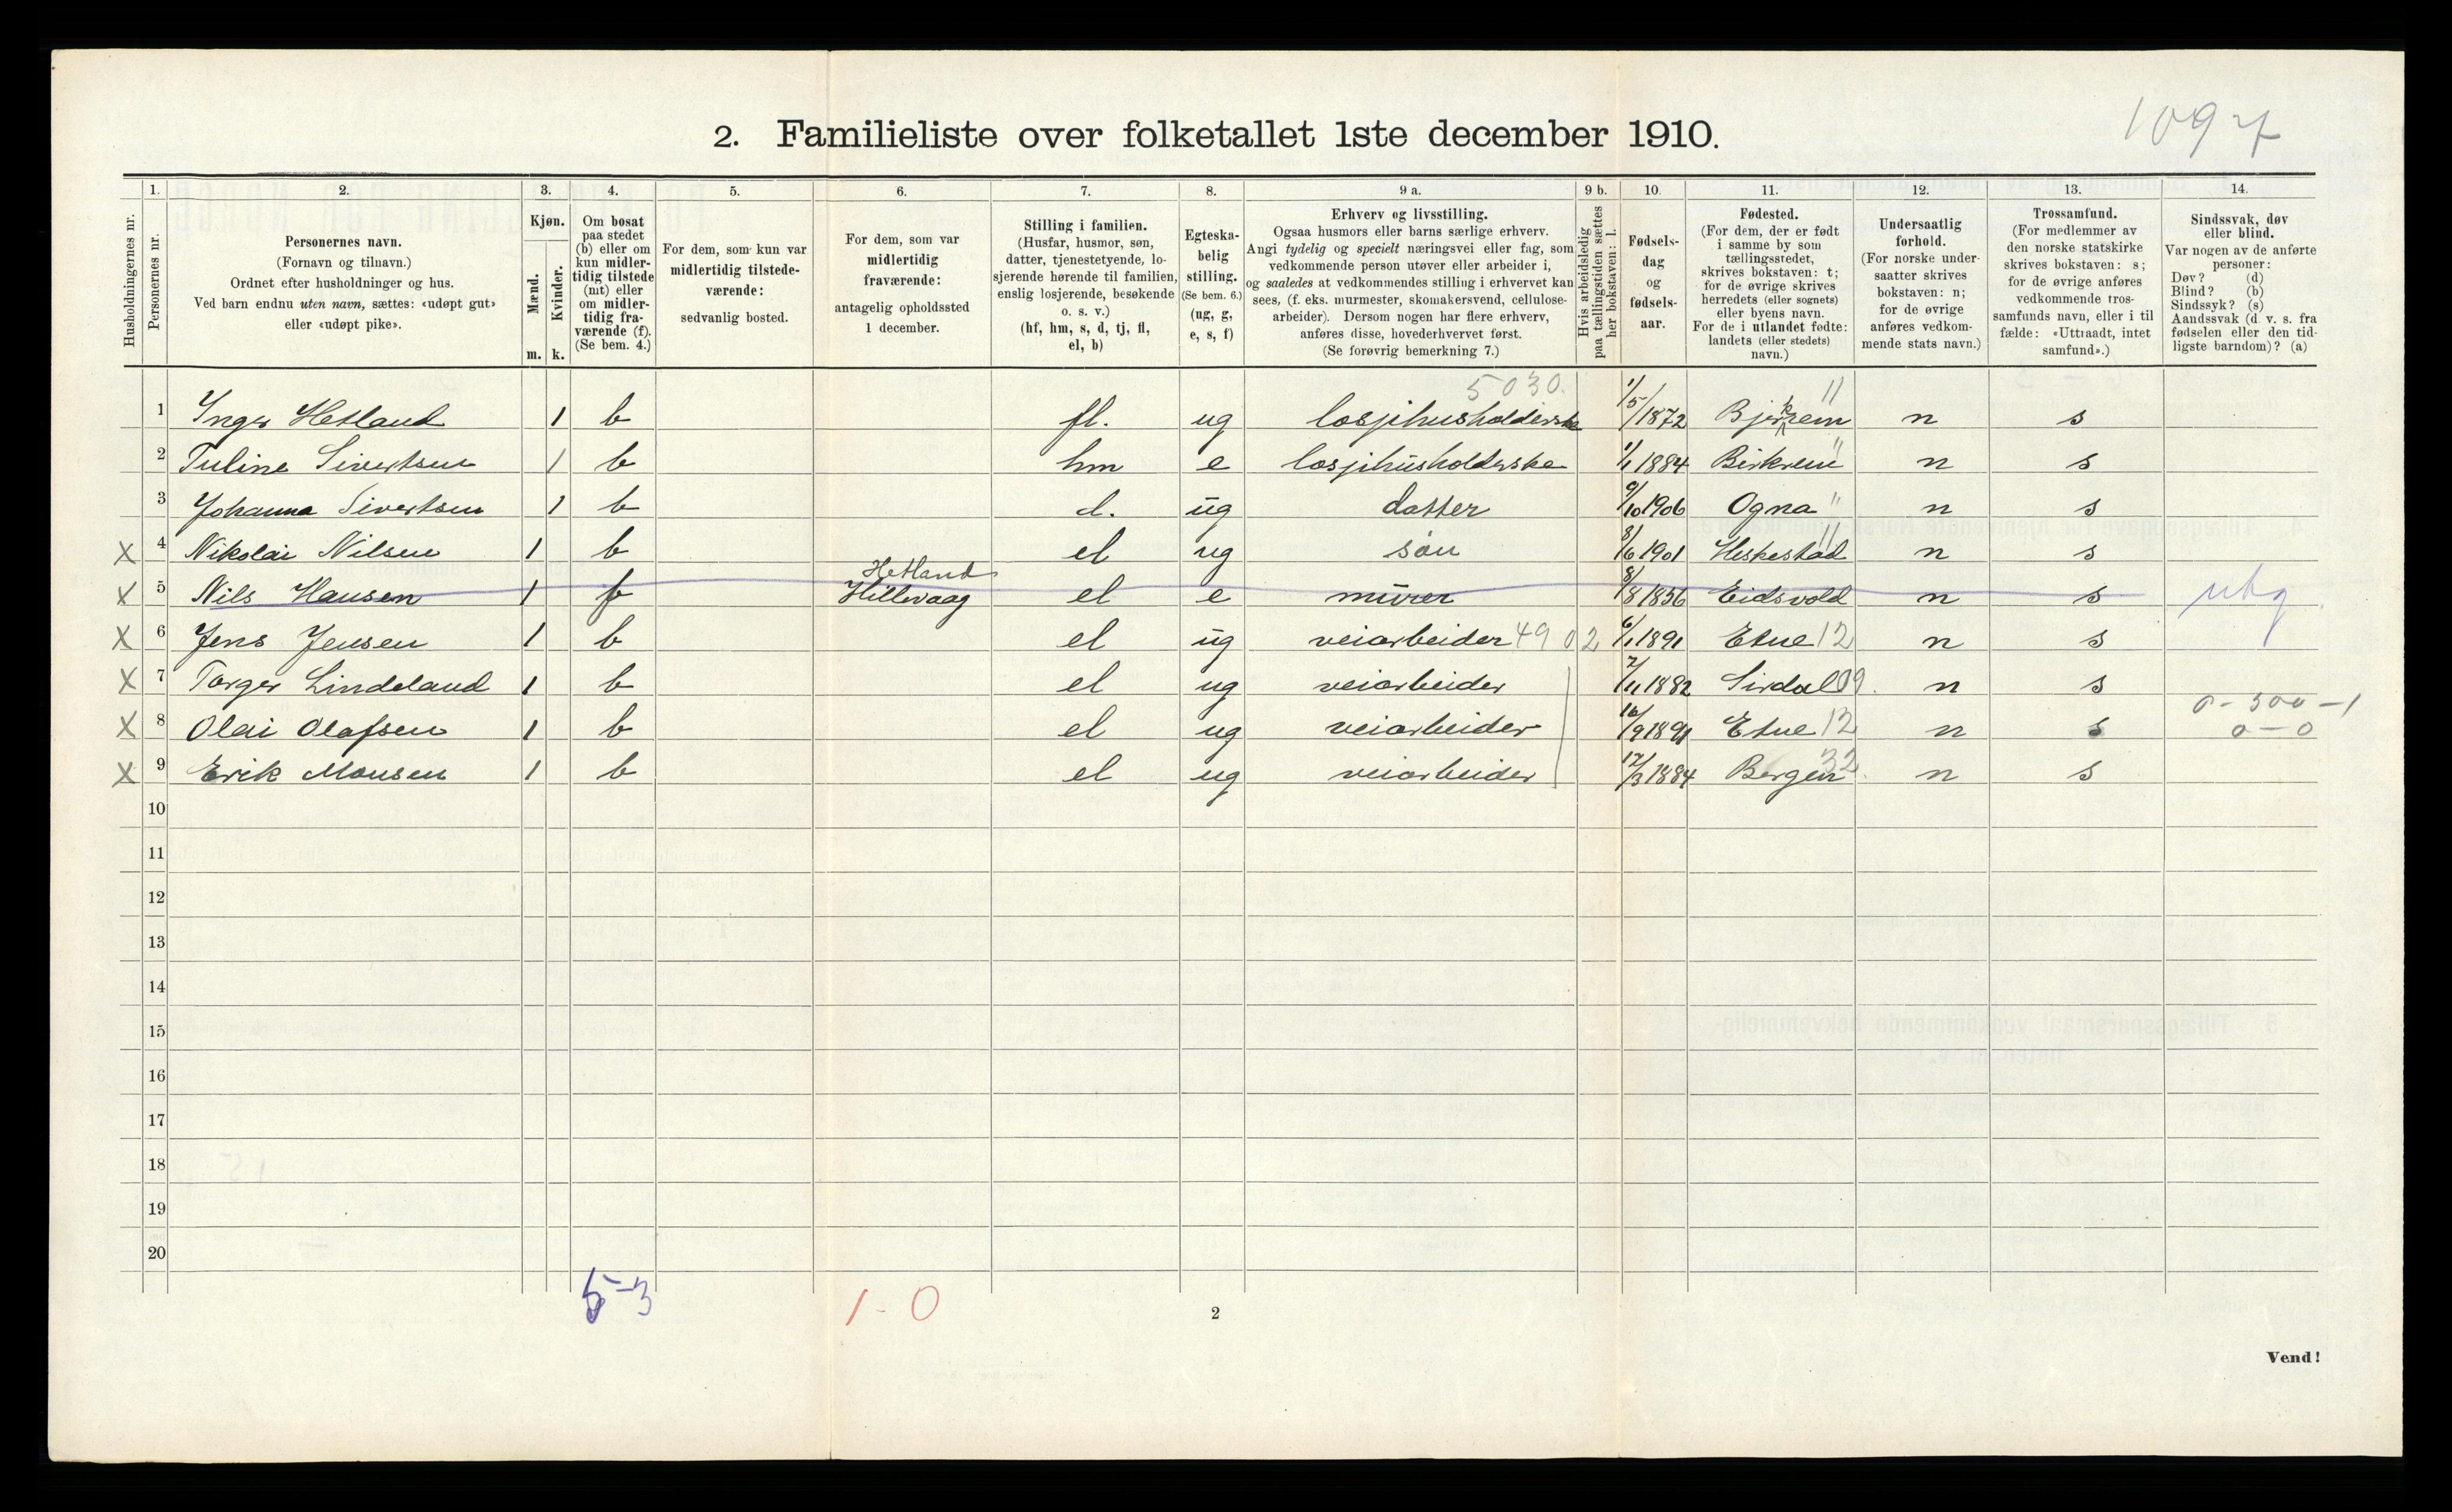 1097
2. Familieliste over folketallet 1ste december 1910.
Husholdningernes nr.
1. Personernes nr.
2. Personernes navn. (Fornavn og tilnavn.) Ordnet efter husholdninger og hus. Ved barn endnu uten navn, sættes: «udøpt gut» eller «udøpt pike».
3. Kjøn. Mænd. m. Kvinder. k.
4. Om bosat paa stedet (b) eller om kun midlertidig tilstede (mt) eller om midlertidig fraværende (f). (Se bem. 4.)
5. For dem, som kun var midlertidig tilstedeværende: sedvanlig bosted.
6. For dem, som var midlertidig fraværende: antagelig opholdssted 1 december.
7. Stilling i familien. (Husfar, husmor, søn, datter, tjenestetyende, losjerende hørende til familien, enslig losjerende, besøkende o. s. v.) (hf, hm, s, d, tj, fl, el, b)
8. Egteskabelig stilling. (Se bem. 6.) (ug, g, e, s, f)
9 a. Erhverv og livsstilling. Ogsaa husmors eller barns særlige erhverv. Angi tydelig og specielt næringsvei eller fag, som vedkommende person utøver eller arbeider i, og saaledes at vedkommendes stilling i erhvervet kan sees, (f. eks. murmester, skomakersvend, cellulosearbeider). Dersom nogen har flere erhverv, anføres disse, hovederhvervet først. (Se forøvrig bemerkning 7.)
9 b. Hvis arbeidsledig paa tællingstiden sættes her bokstaven: l.
10. Fødselsdag og fødselsaar.
11. Fødested. (For dem, der er født i samme by som tællingsstedet, skrives bokstaven: t; for de øvrige skrives herredets (eller sognets) eller byens navn. For de i utlandet fødte: landets (eller stedets) navn.)
12. Undersaatlig forhold. (For norske undersaatter skrives bokstaven: n; for de øvrige anføres vedkommende stats navn.)
13. Trossamfund. (For medlemmer av den norske statskirke skrives bokstaven: s; for de øvrige anføres vedkommende trossamfunds navn, eller i tilfælde: «Uttraadt, intet samfund».)
14. Sindssvak, døv eller blind. Var nogen av de anførte personer: Døv? (d) Blind? (b) Sindssyk? (s) Aandssvak (d. v. s. fra fødselen eller den tidligste barndom)? (a)
5030.
1 Inger Hetland 1 b fl. ug losjihusholderske 1/5/1872 Bjerkrem " n s
2 Tuline Sivertsen 1 b hm e losjihusholderske 1/1 1884 Birkrem " n s
3 Johanna Sivertsen 1 b d. ug datter 9/10 1906 Ogna " n s
X 4 Nikolai Nilsen 1 b el ug søn 8/6 1901 Heskestad " n s
X 5 Nils Hansen 1 f Hetland Hillevaag el e murer 8/8 1856 Eidsvold n s ubg
X 6 Jens Jensen 1 b el ug veiarbeider 4902 6/1 1891 Etne 12 n s
X 7 Torger Lindeland 1 b el ug veiarbeider 7/11 1882 Sirdal 09. n s
0-300-1
X 8 Olai Olafsen 1 b el ug veiarbeider 16/9 1891 Etne 12 n s 0-0
X 9 Erik Monsen 1 b el ug veiarbeider 12/3 1884 Bergen 32. n s
10
11
12
13
14
15
16
17
18
19
20
5-3
1-0
2
Vend!